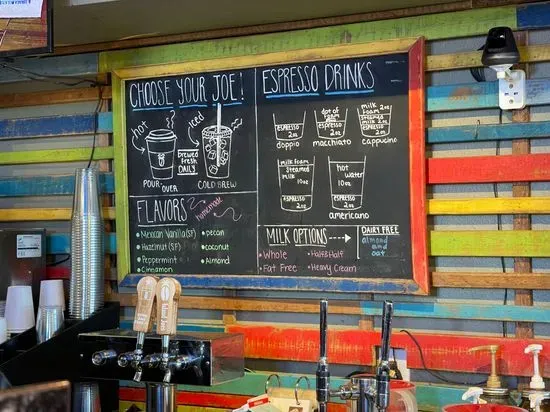 CHOOSE YOUR JOE!
hot
iced
brewed
FRESH
DAILY
POUR
OVER
COLD BREW
FLAVORS
homemade
Mexican Vanilla (SF)
Hazelnut (SF)
Peppermint
Cinnamon
pecan
coconut
Almond
ESPRESSO DRINKS
ESPRESSO
2oz
doppio
dot of
FOAM
ESPRESSO
2oz
macchiato
milk 2oz
FOAM
Steamed
milk 2oz
ESPRESSO
2oz
cappucino
milk FOAM
Steamed
milk
10oz
ESPRESSO
2oz
hot
water
10oz
ESPRESSO
2oz
americano
MILK OPTIONS
Whole
Fat Free
Half&Half
Heavy Cream
DAIRY FREE
almond and
oat